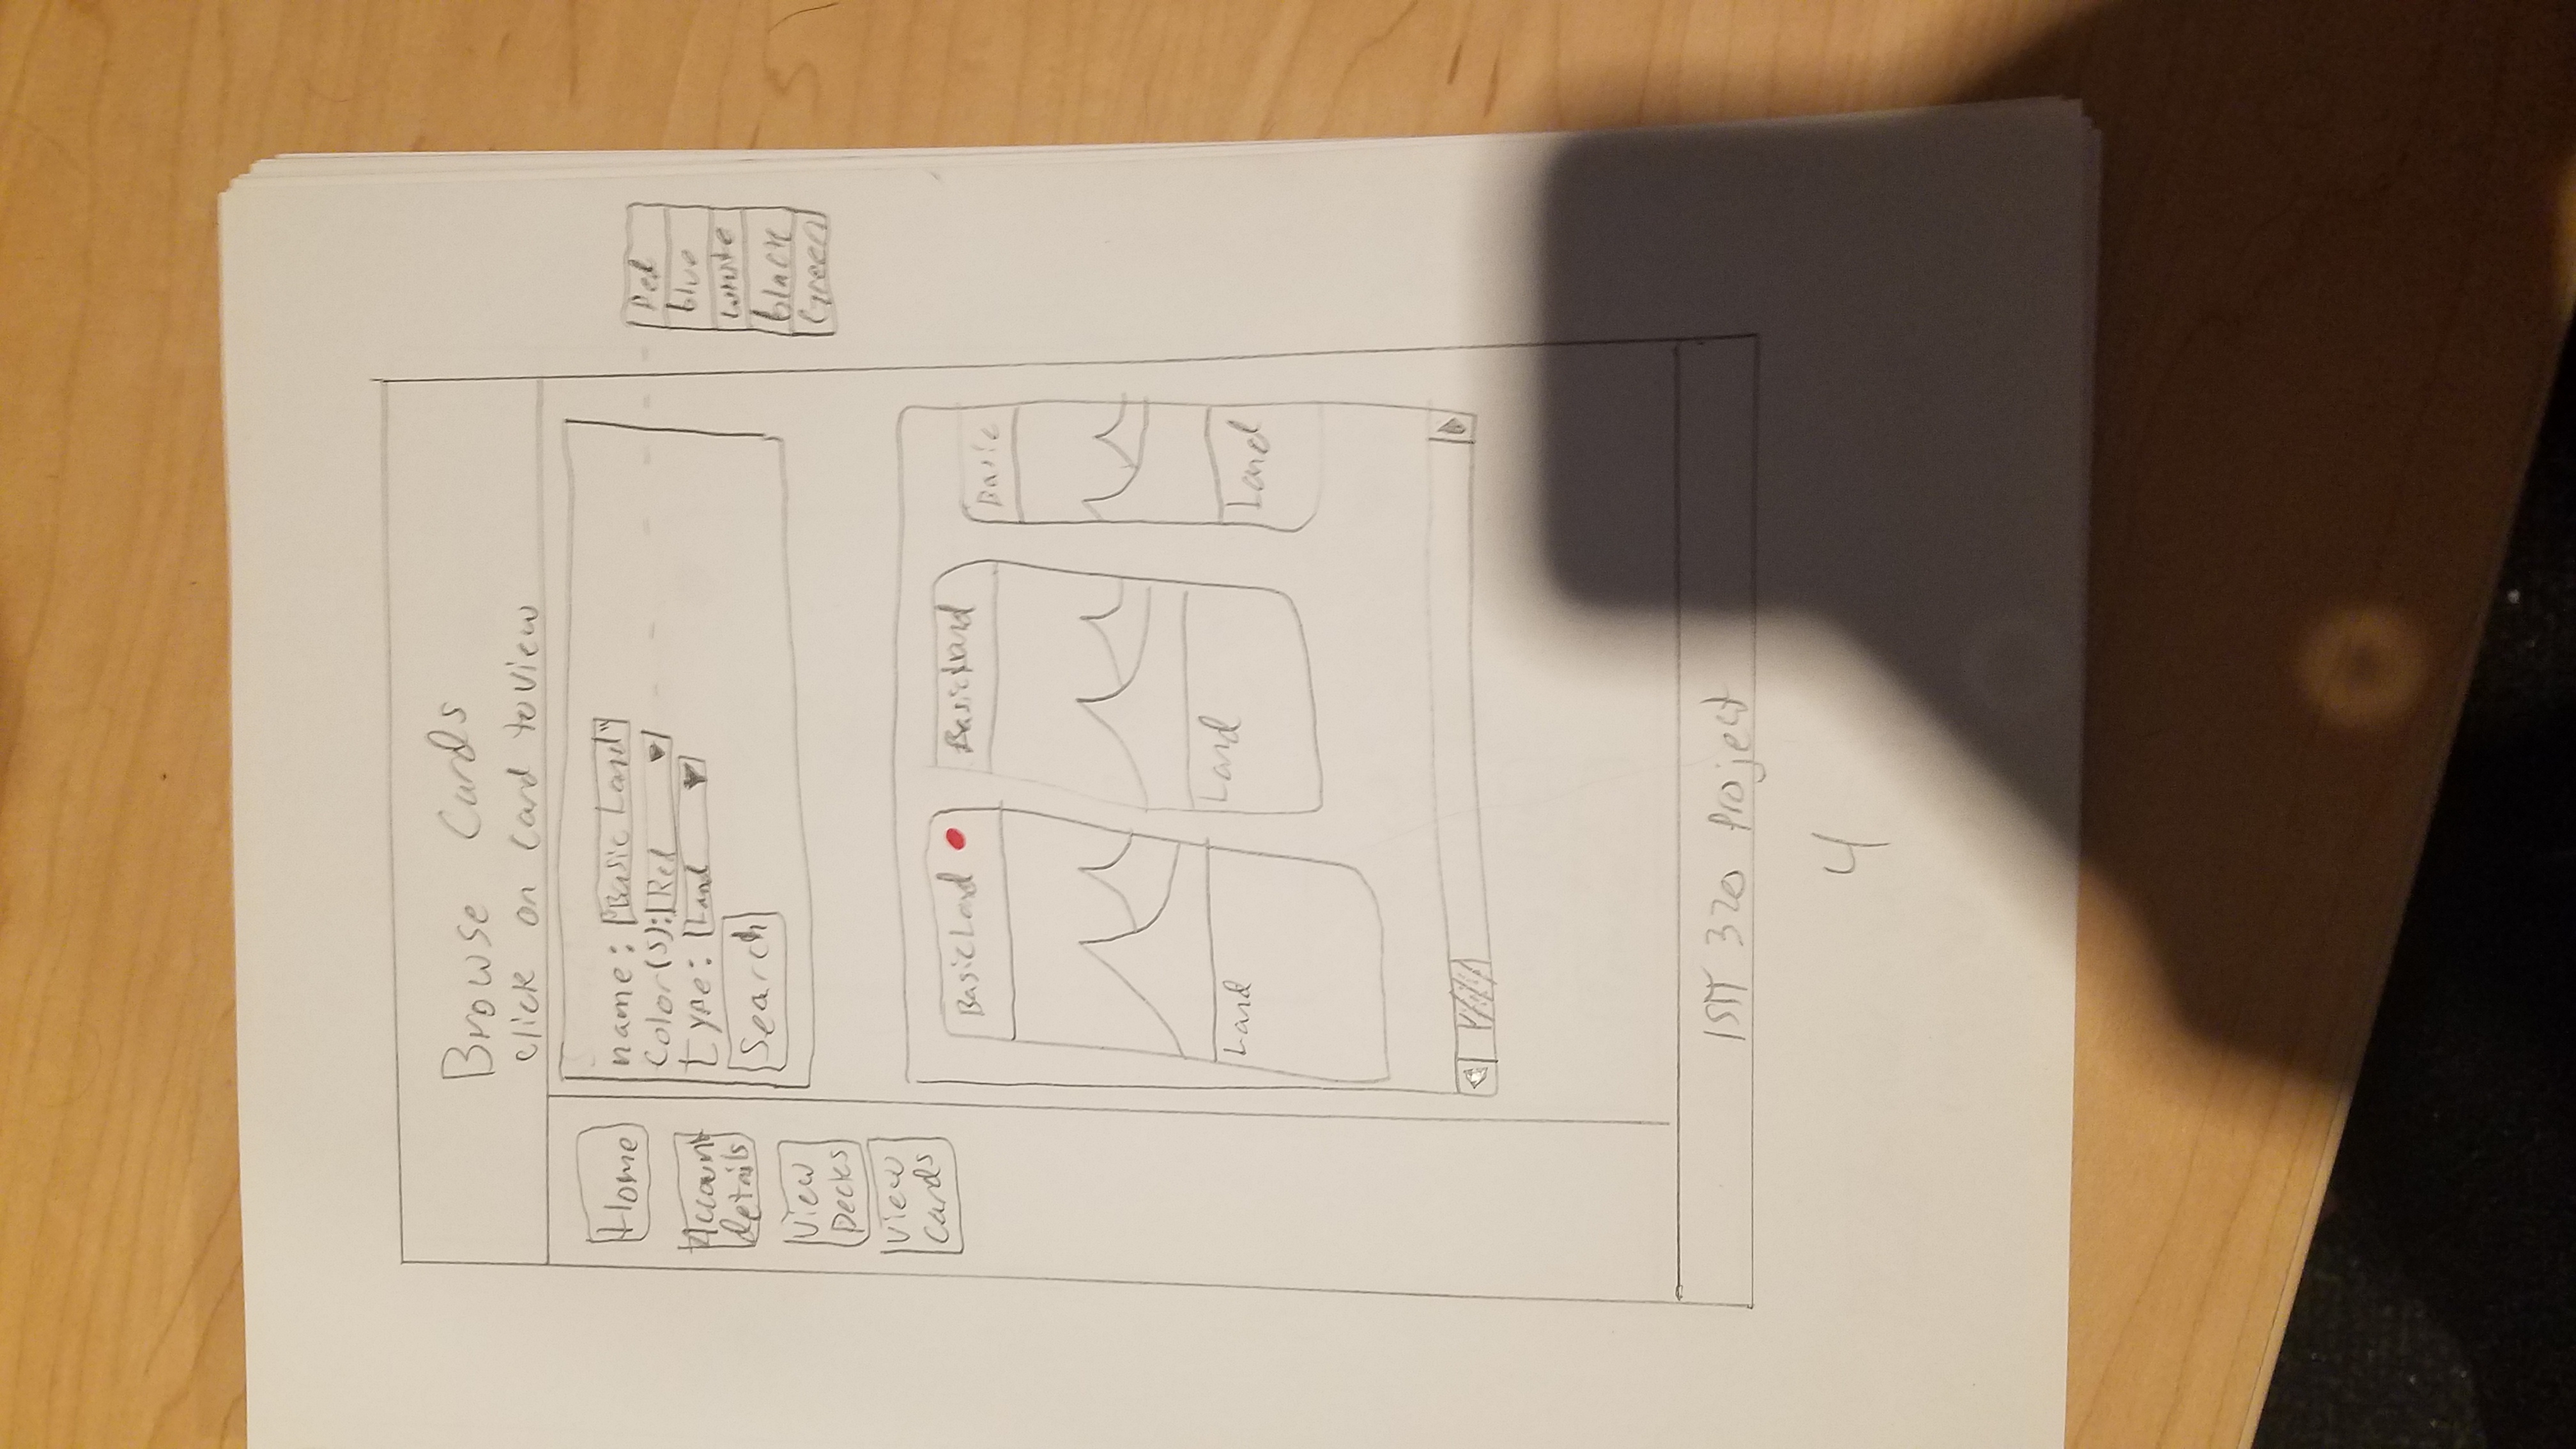 Browse Cards
click on card to view
Home
Account
details
View
Decks
View
Cards
name: "Basic Land"
Color(s): Red
type: Land
Search
Red
blue
white
black
Green
Basic Land
Basic Land
Basic
Land
Land
Land
320 Project
4